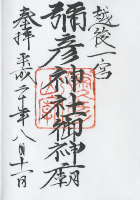 越後一宮
彌彦神社御神廟
奉拝 平成二十年八月十一日